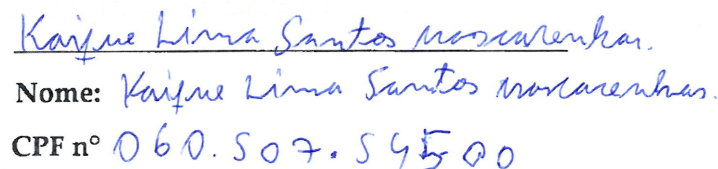 Kaique Lima Santos Mascarenhas.
Nome: Kaique Lima Santos Mascarenhas.
CPF nº 060.507.545 00